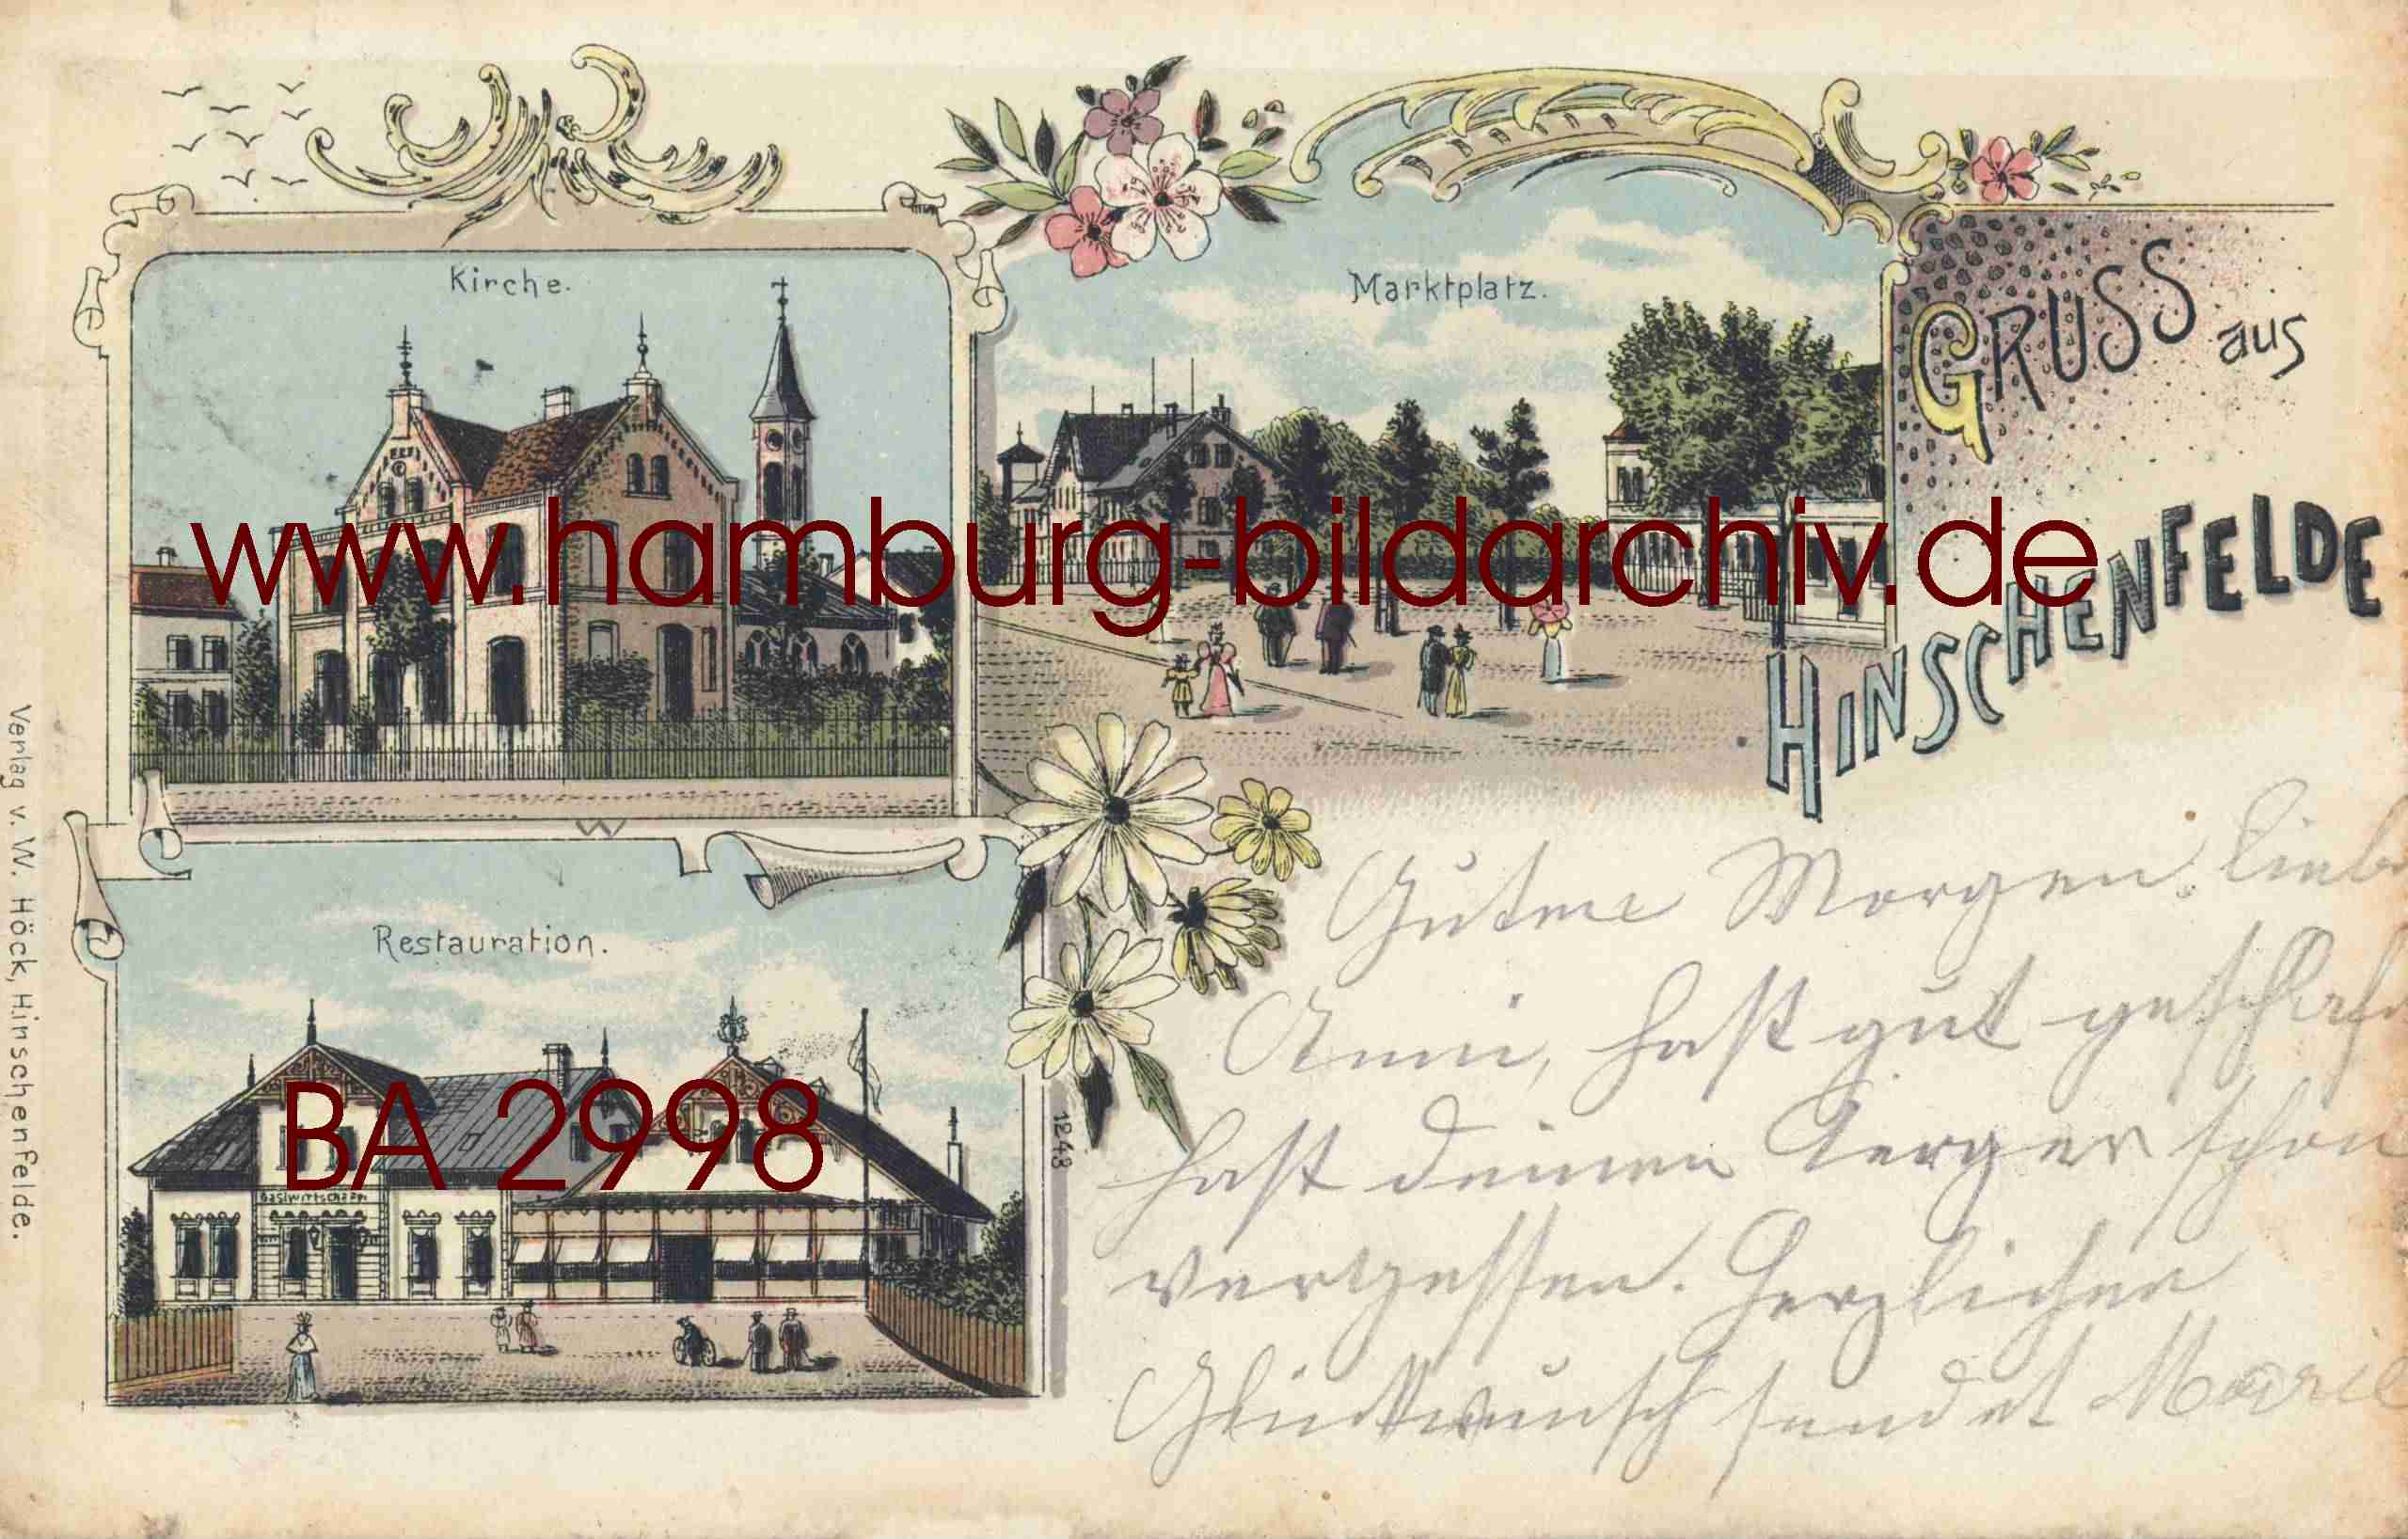 Kirche.
Marktplatz.
GRUSS aus
HINSCHENFELDE
www.hamburg-bildarchiv.de
Restauration.
BA 2998
Gastwirtschaft
1248
Verlag v. W. Höck, Hinschenfelde.
Guten Morgen liebe
Anni, hast gut geschlafen
hast deinen Aerger schon
vergessen. Herzlichen
Glückwunsch sendet Marie